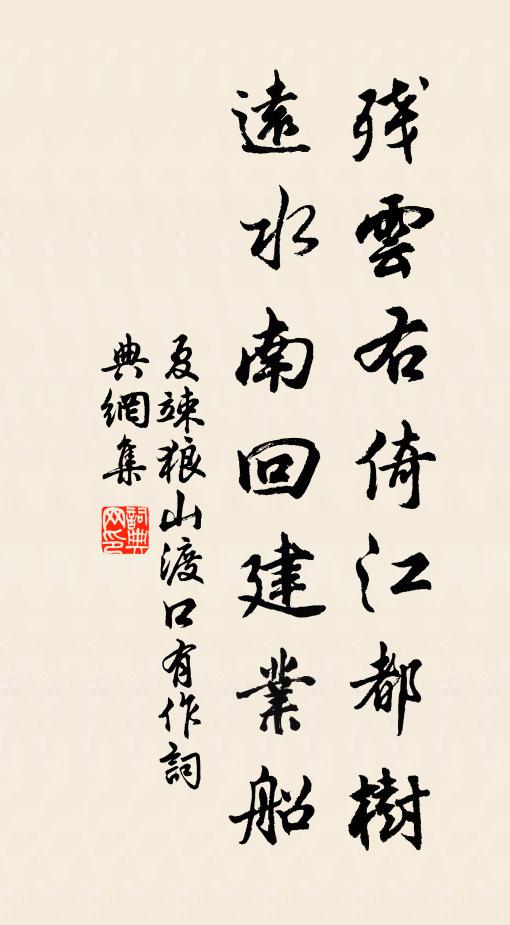 残雲右倚江都樹
遠水南回建業船
夏竦狼山渡口有作詞
典網集
詞典
网印